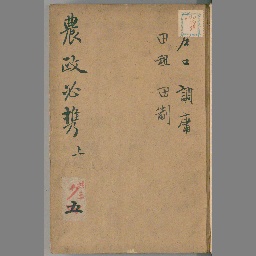 戸口 調庸
田租 田制
農政必携 上
五